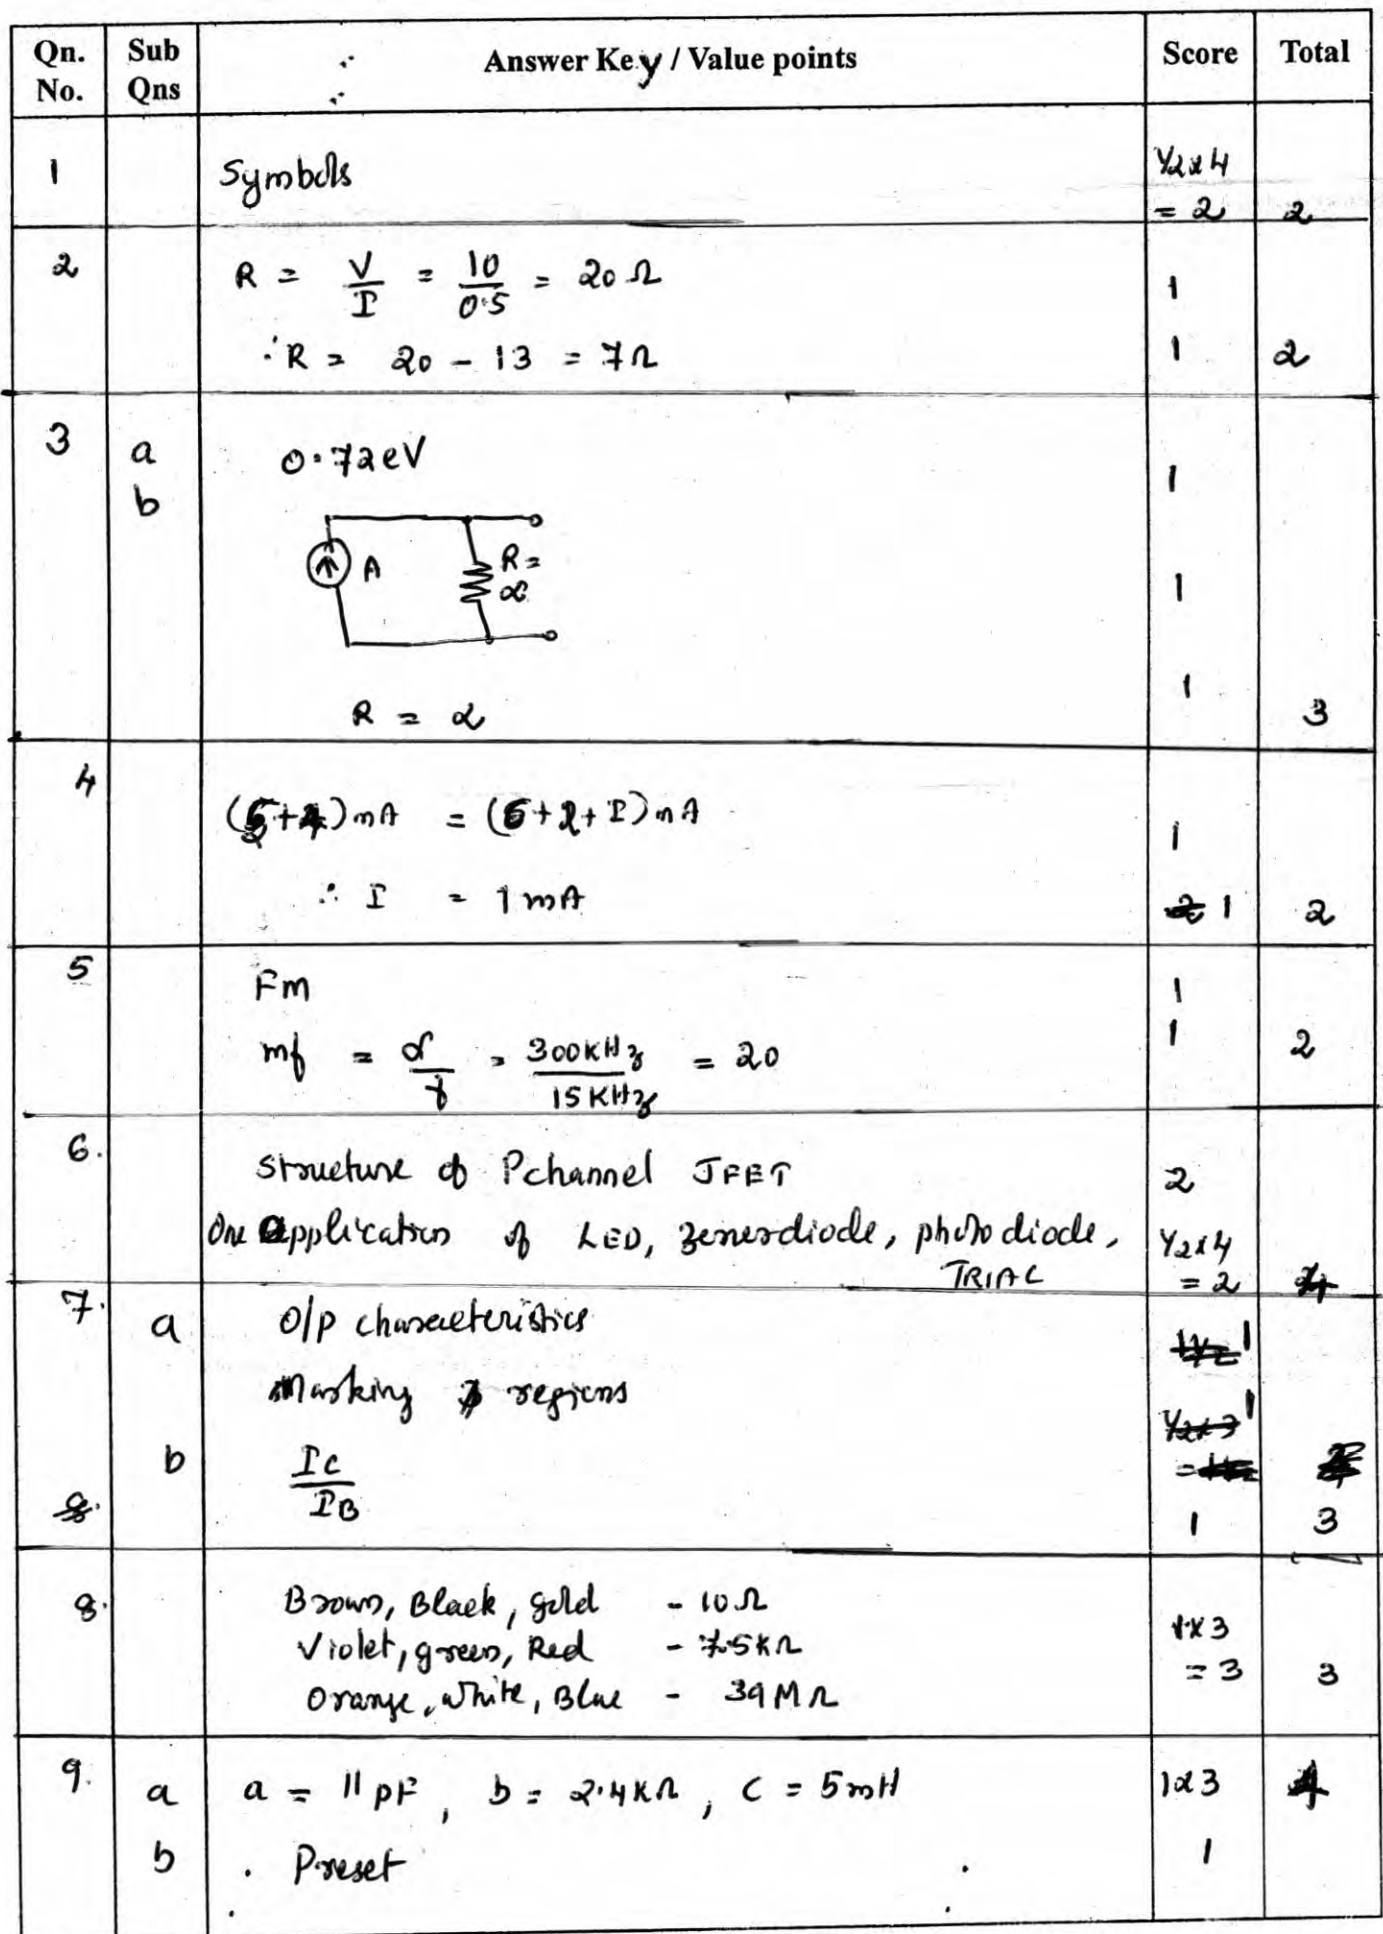 Qn. No. Sub Qns Answer Key / Value points Score Total
1 Symbols ½x4
= 2 2
2 R = V/I = 10/0.5 = 20 Ω 1
∴ R = 20 - 13 = 7Ω 1 2
3 a 0.72eV 1
b
A R = ∞ 1
R = ∝ 1 3
4
(5+4)mA = (6+2+I)mA 1
∴ I = 1mA 1 2
5 Fm 1
mf = δ/f = 300KHz/15KHz = 20 1 2
6. Structure of Pchannel JFET 2
One application of LED, Zenerdiode, photo diode, ½x4
TRIAC = 2 4
7. a O/P characteristics 1
Marking regions 1
b IC/IB
1 3
8. Brown, Black, gold - 10Ω
Violet, green, Red - 7.5KΩ 1x3
Orange, white, Blue - 39MΩ = 3 3
9. a a = 11pF, b = 2.4KΩ, c = 5mH 1x3 4
b Preset 1